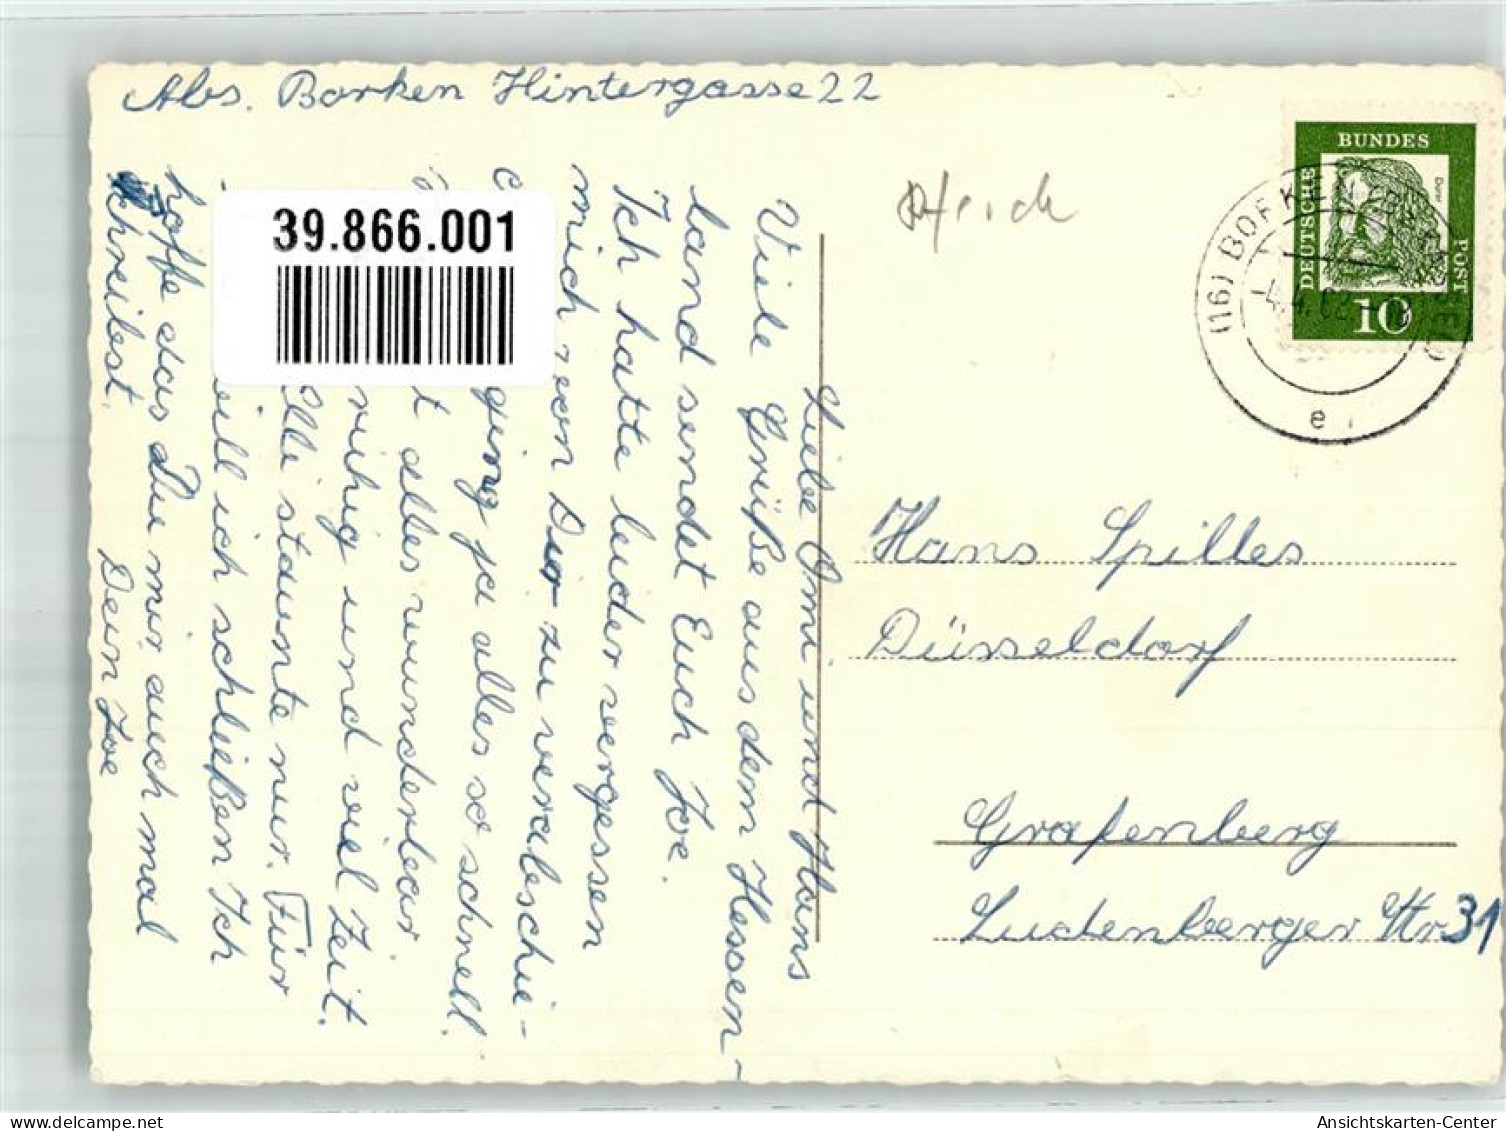 Abs. Borken Hintergasse 22
Liebe Omi und Hans
Viele Grüße aus dem Hessen-
land sendet Euch Joe.
Ich hatte leider vergessen
mich von Dir zu verabschie-
ging ja alles so schnell.
t alles wunderbar
ruhig und viel Zeit.
Alle staunte nur. Für
will ich schließen Ich
hoffe das Du mir auch mal
schreibst.
Dein Joe
39.866.001
DEUTSCHE
BUNDES
POST
Dürer
10
(16) BORKEN (BZ KASSEL)
-4.4.62
e
Hans Spilles
Düsseldorf
Grafenberg
Ludenberger Str. 31
Ansichtskarten-Center